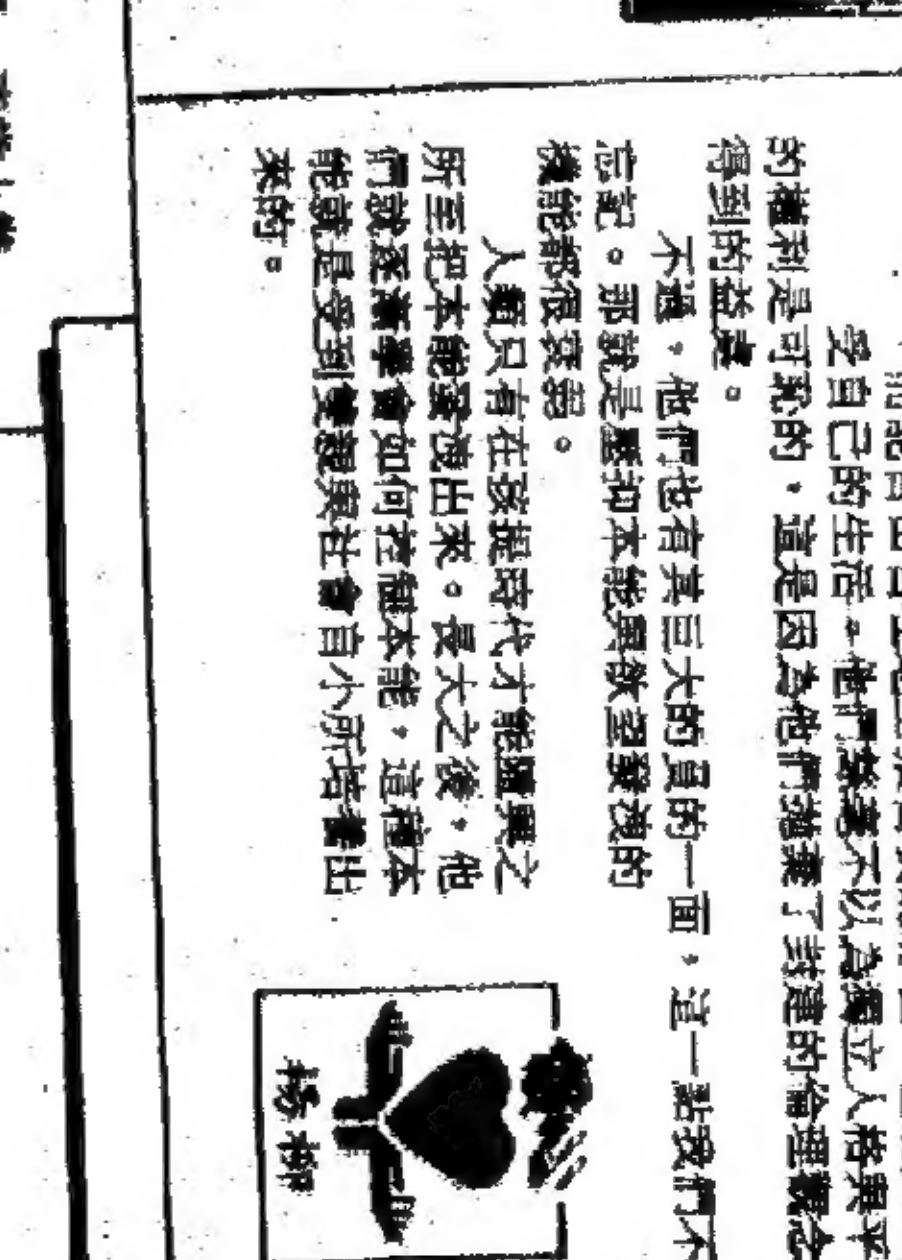 受自己的生活。他們絲毫不以為獨立人格與平
的權利是可恥的，這是因為他們拋棄了封建的倫理觀念
得到的益處。
不過，他們也有其巨大的負的一面，這一點我們不
忘記。那就是壓抑本能與欲望發洩的
機能都很衰弱。
人類只有在孩提時代才能隨興之
所至把本能發洩出來。長大之後，他
們就逐漸學會如何控制本能，這種本
能就是受到雙親與社會自小所培養出
來的。
楊柳